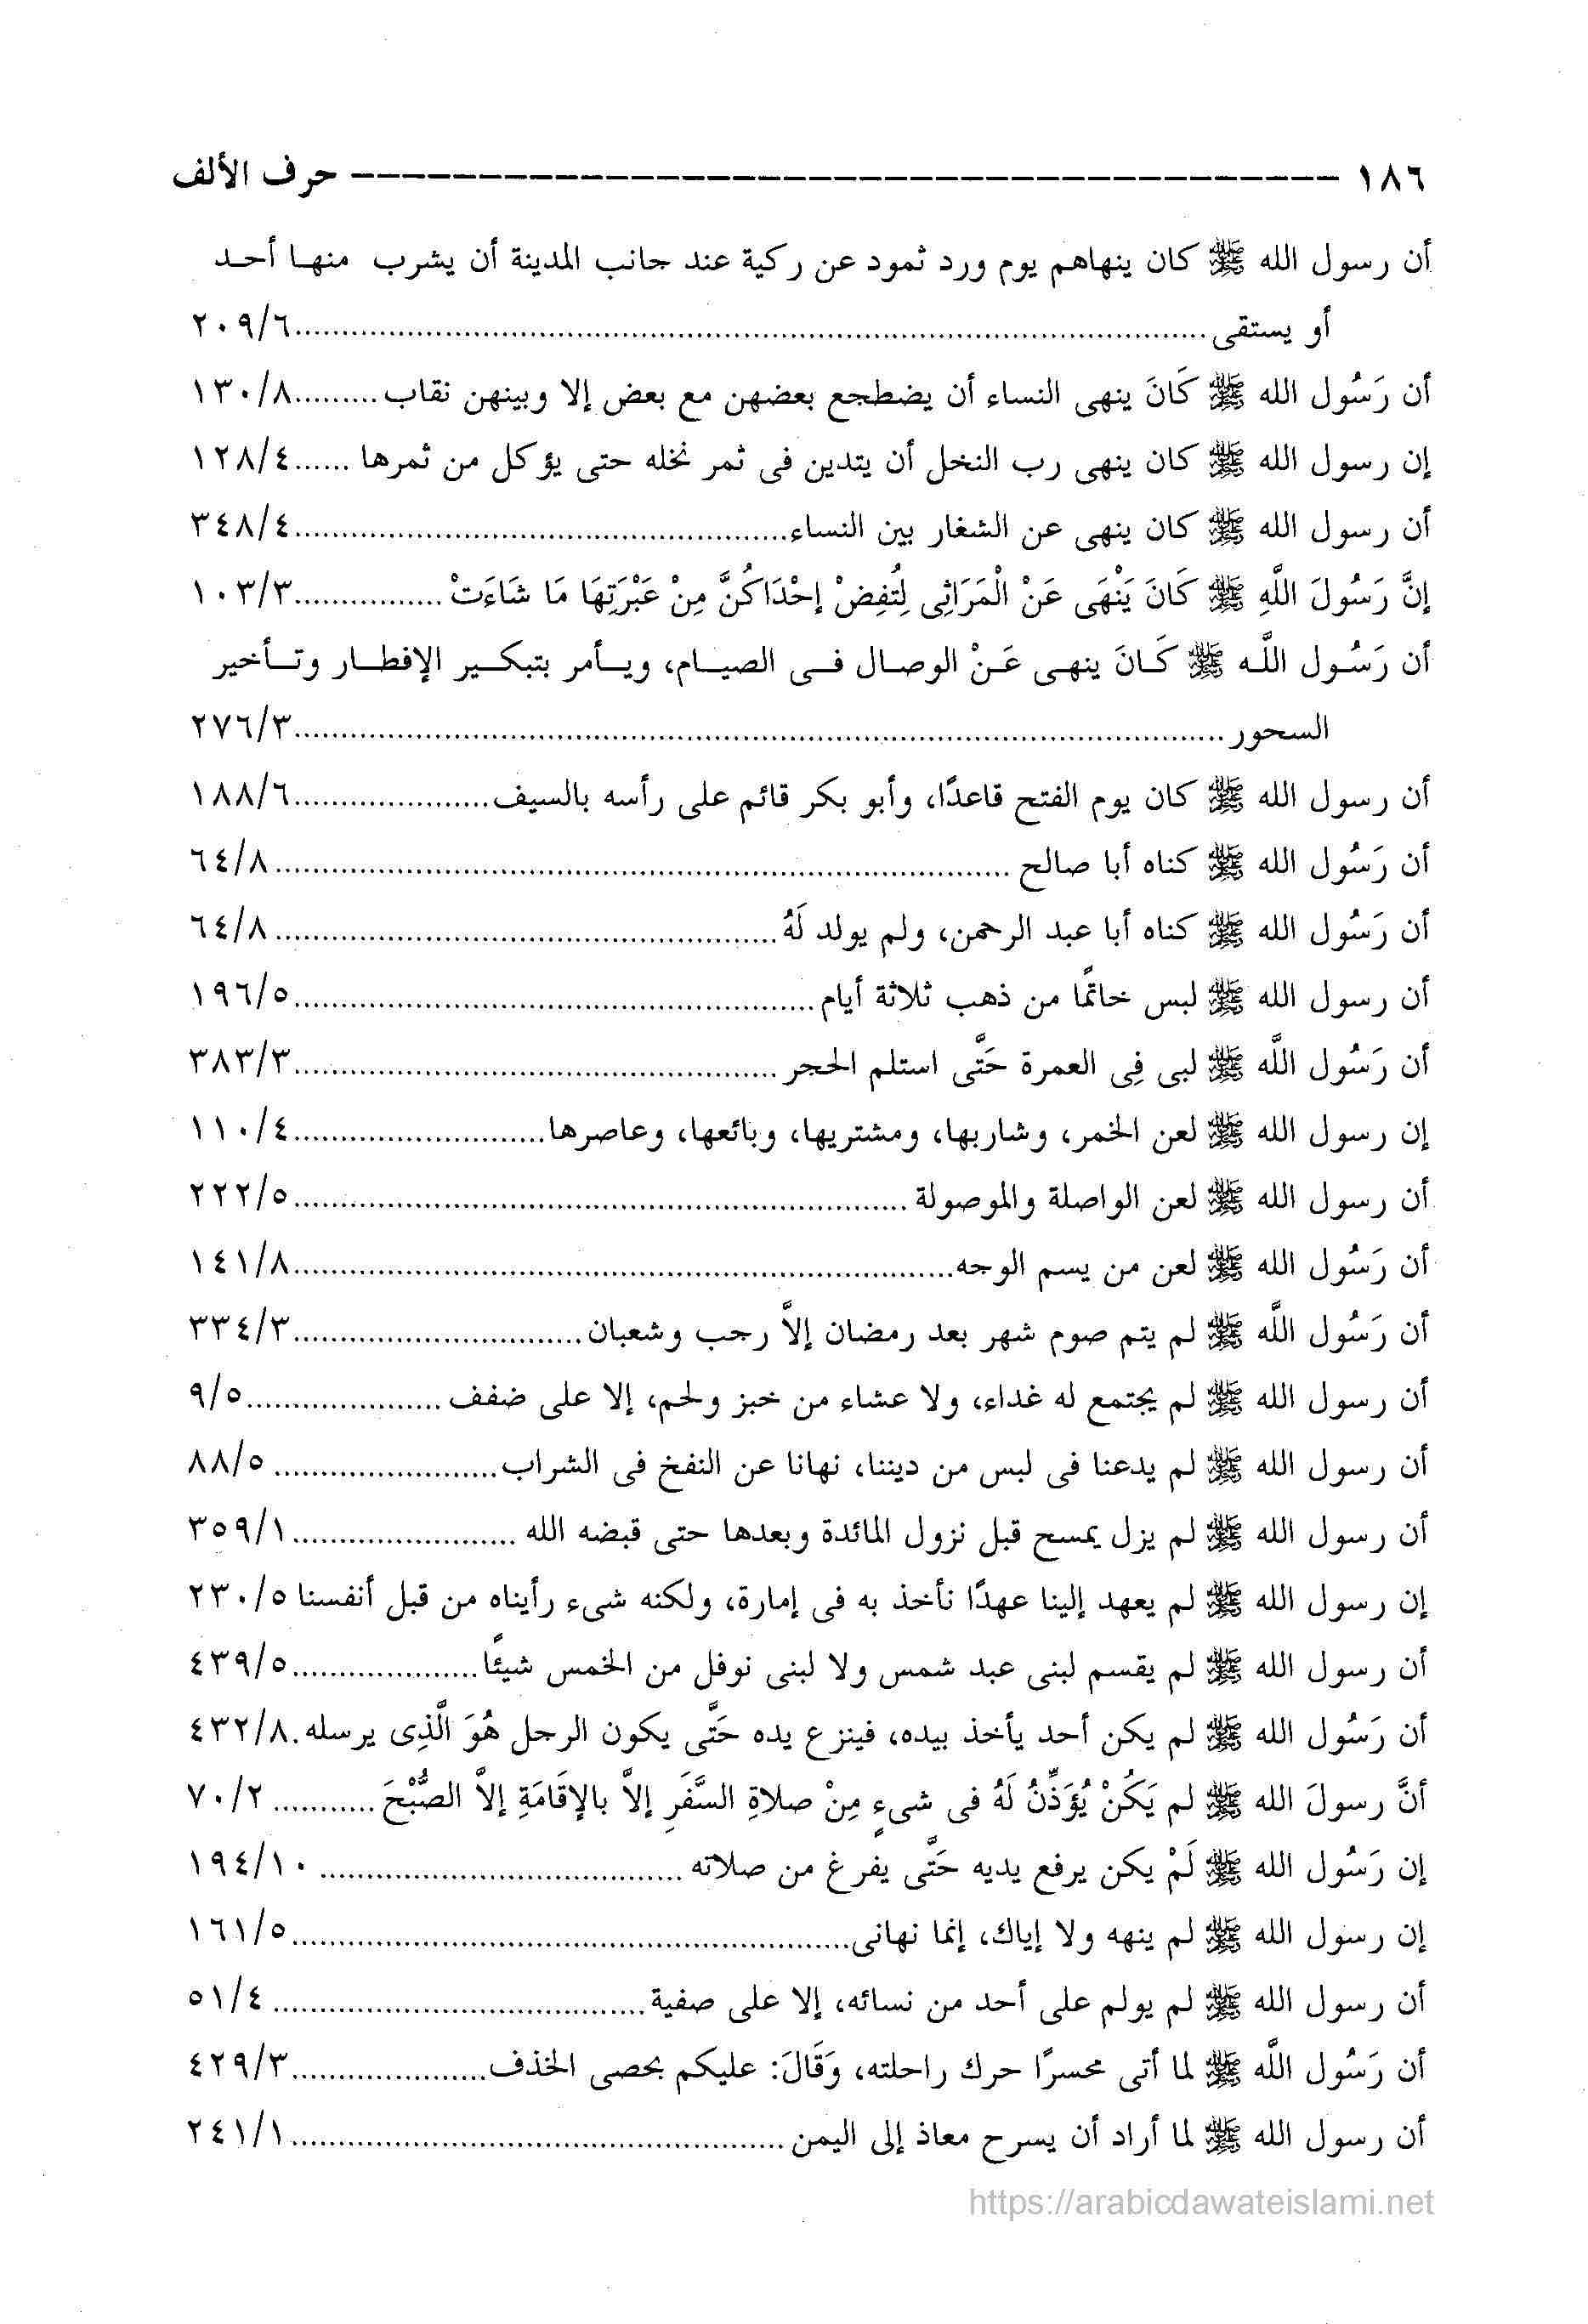 ١٨٦ ---------------------------------------- حرف الألف
أن رسول الله ﷺ كان ينهاهم يوم ورد ثمود عن ركية عند جانب المدينة أن يشرب منها أحد
أو يستقى................................................................٢٠٩/٦
أن رَسُول الله ﷺ كَانَ ينهى النساء أن يضطجع بعضهن مع بعض إلا وبينهن نقاب.........١٣٠/٨
إن رسول الله ﷺ كان ينهى رب النخل أن يتدين فى ثمر نخله حتى يؤكل من ثمرها ......١٢٨/٤
أن رسول الله ﷺ كان ينهى عن الشغار بين النساء........................................٣٤٨/٤
إنَّ رَسُولَ اللَّهِ ﷺ كَانَ يَنْهَى عَنْ الْمَرَاثِى لِتُفِضْ إحْدَاكُنَّ مِنْ عَبْرَتِهَا مَا شَاءَتْ ................١٠٣/٣
أن رَسُول اللَّه ﷺ كَانَ ينهى عَنْ الوصال فى الصيام، ويأمر بتبكير الإفطار وتأخير
السحور................................................................٢٧٦/٣
أن رسول الله ﷺ كان يوم الفتح قاعدًا، وأبو بكر قائم على رأسه بالسيف.....................١٨٨/٦
أن رَسُول الله ﷺ كناه أبا صالح ........................................................٦٤/٨
أن رَسُول الله ﷺ كناه أبا عبد الرحمن، ولم يولد لَهُ........................................٦٤/٨
أن رسول الله ﷺ لبس خاتمًا من ذهب ثلاثة أيام........................................١٩٦/٥
أن رَسُول اللَّه ﷺ لبى فِى العمرة حَتَّى استلم الحجر ........................................٣٨٣/٣
إن رسول الله ﷺ لعن الخمر، وشاربها، ومشتريها، وبائعها، وعاصرها...........................١١٠/٤
أن رسول الله ﷺ لعن الواصلة والموصولة ................................................٢٢٢/٥
أن رَسُول الله ﷺ لعن من يسم الوجه................................................١٤١/٨
أن رَسُول اللَّه ﷺ لم يتم صوم شهر بعد رمضان إلاَّ رجب وشعبان..............................٣٣٤/٣
أن رسول الله ﷺ لم يجتمع له غداء، ولا عشاء من خبز ولحم، إلا على ضفف .....................٩/٥
أن رسول الله ﷺ لم يدعنا فى لبس من ديننا، نهانا عن النفخ فى الشراب........................٨٨/٥
أن رسول الله ﷺ لم يزل يمسح قبل نزول المائدة وبعدها حتى قبضه الله ........................٣٥٩/١
إن رسول الله ﷺ لم يعهد إلينا عهدًا نأخذ به فى إمارة، ولكنه شىء رأيناه من قبل أنفسنا ٢٣٠/٥
أن رسول الله ﷺ لم يقسم لبنى عبد شمس ولا لبنى نوفل من الخمس شيئًا....................٤٣٩/٥
أن رَسُول الله ﷺ لم يكن أحد يأخذ بيده، فينزع يده حَتَّى يكون الرجل هُوَ الَّذِى يرسله.٤٣٢/٨
أنَّ رسولَ الله ﷺ لم يَكُنْ يُؤَذِّنُ لَهُ فى شىءٍ مِنْ صلاةِ السَّفَرِ إلاَّ بالإقَامَةِ إلاَّ الصُّبْحَ ...........٧٠/٢
إن رَسُول الله ﷺ لَمْ يكن يرفع يديه حَتَّى يفرغ من صلاته ......................................١٩٤/١٠
إن رسول الله ﷺ لم ينهه ولا إياك، إنما نهانى................................................١٦١/٥
أن رسول الله ﷺ لم يولم على أحد من نسائه، إلا على صفية........................................٥١/٤
أن رَسُول اللَّه ﷺ لما أتى محسرًا حرك راحلته، وَقَالَ: عليكم بحصى الخذف.....................٤٢٩/٣
أن رسول الله ﷺ لما أراد أن يسرح معاذ إلى اليمن................................................٢٤١/١
https://arabicdawateislami.net